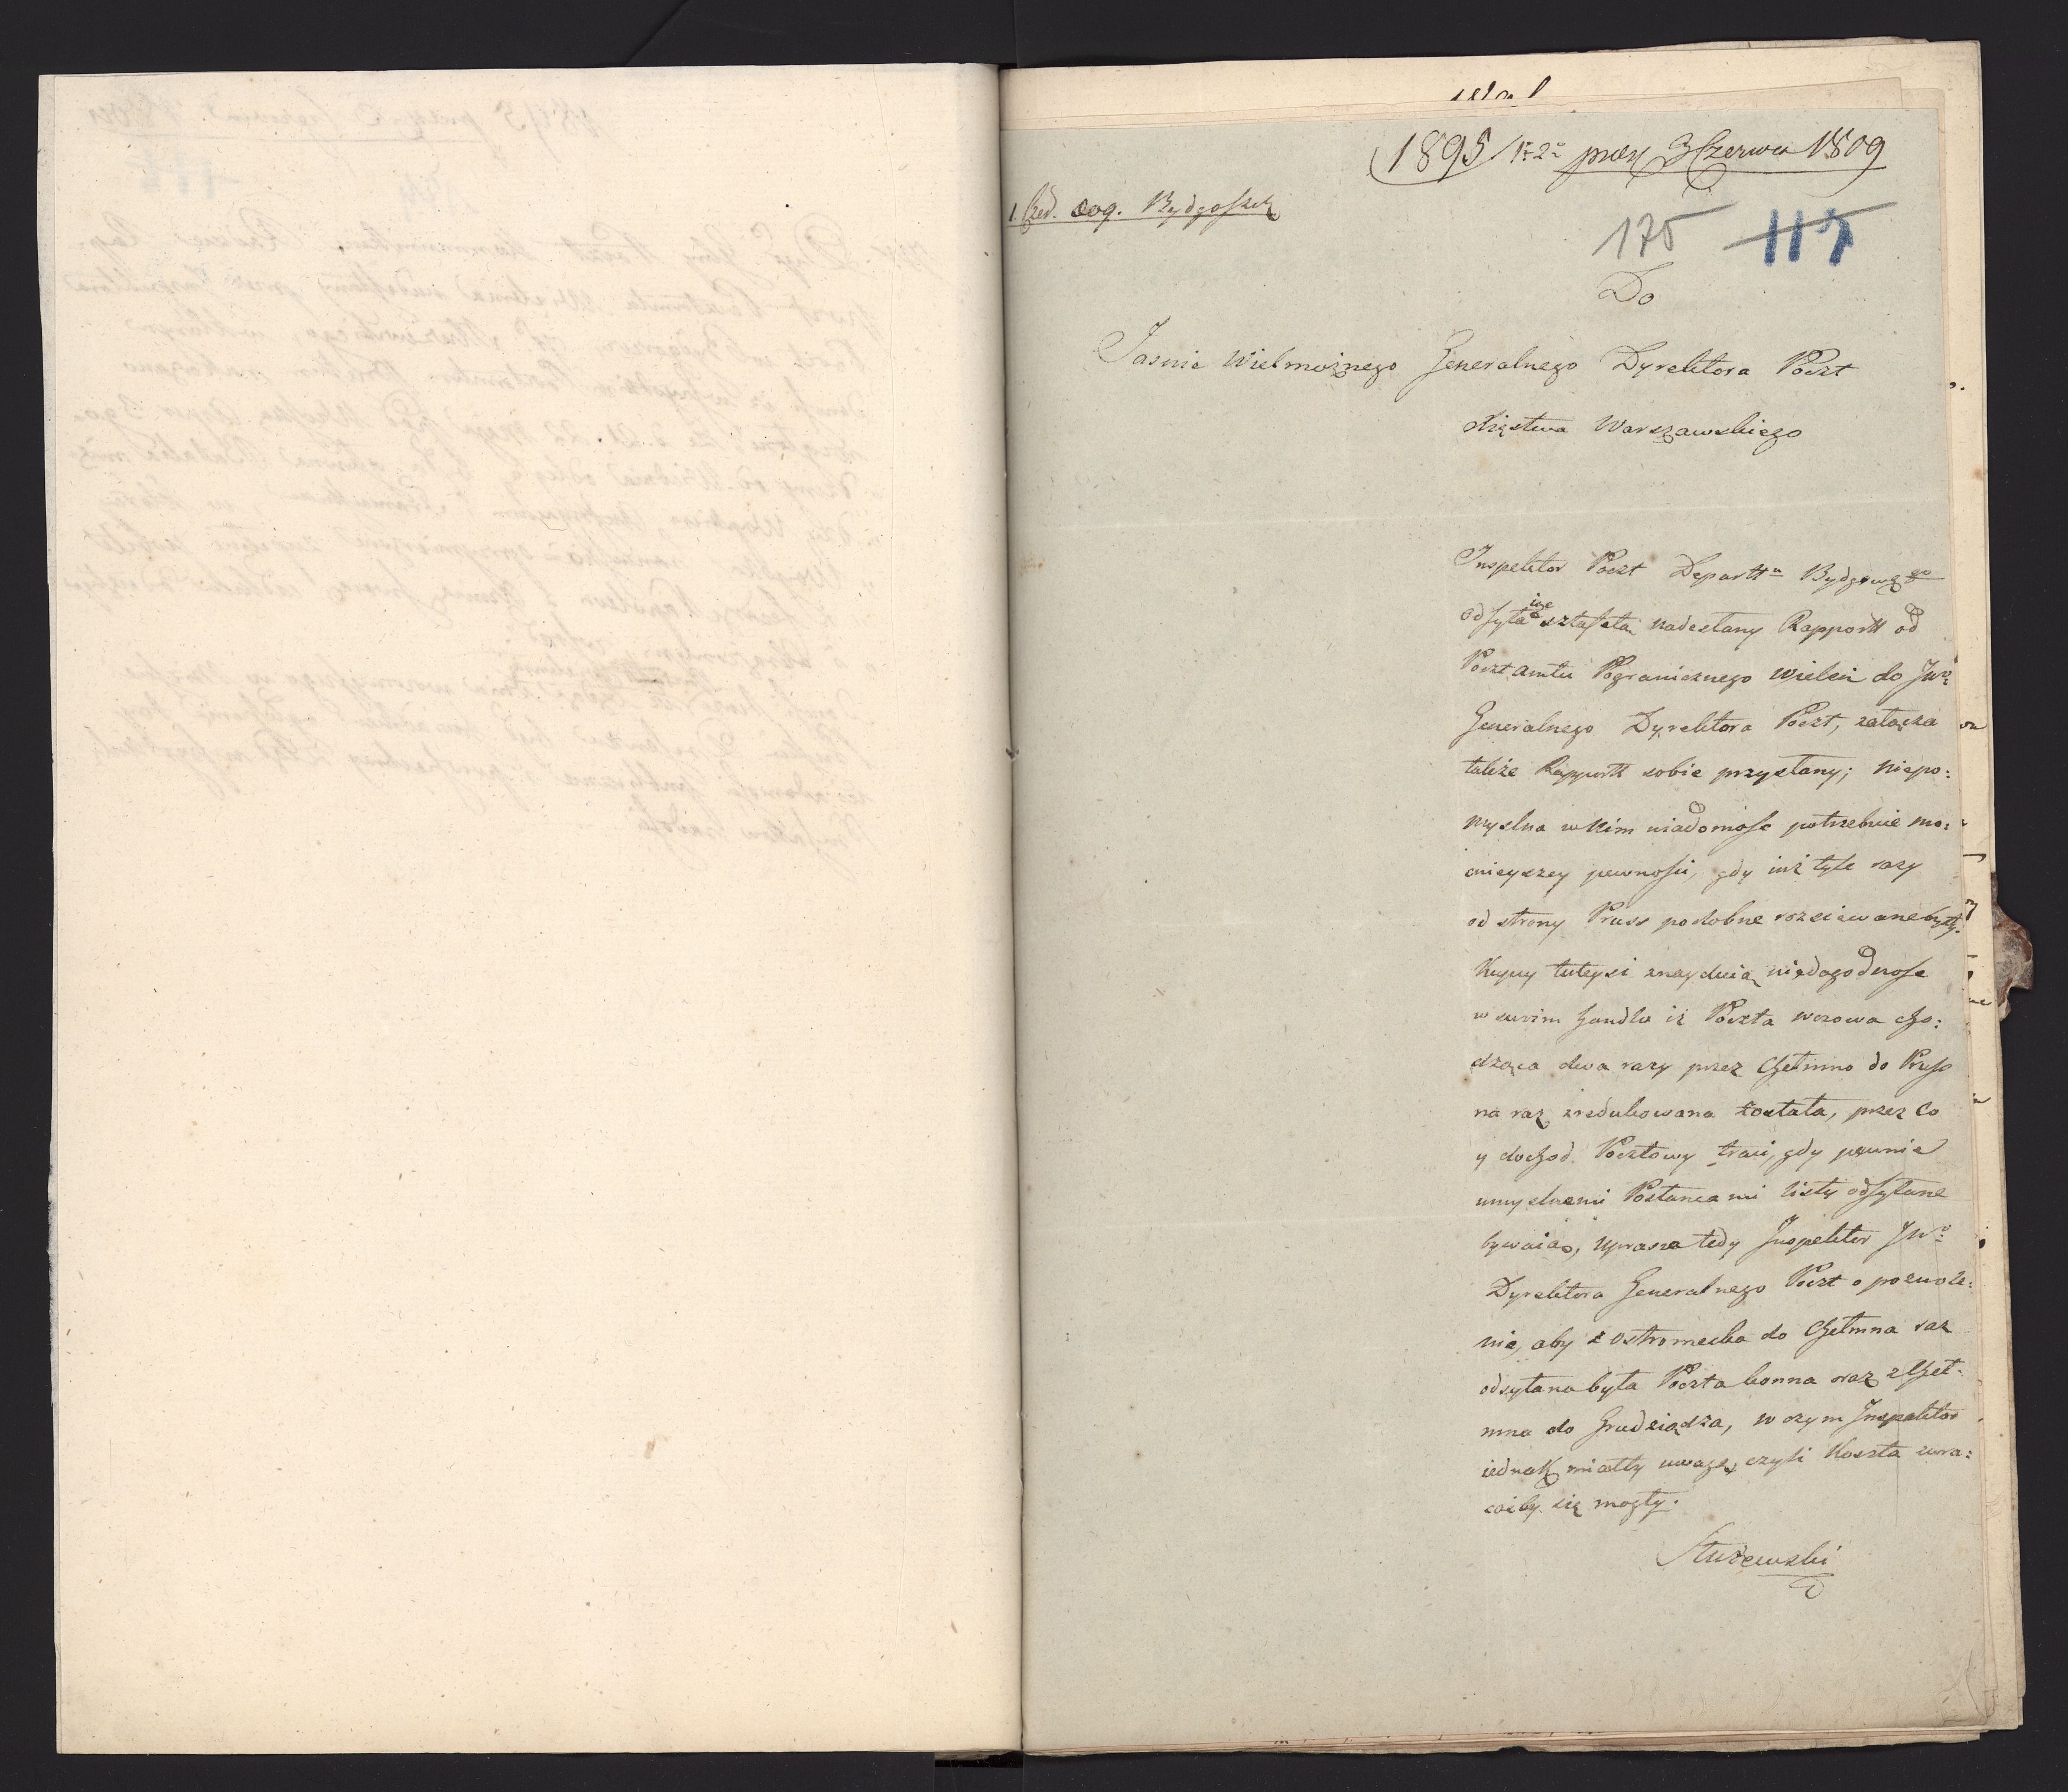 1895 / 1. 2. prez 3 Czerwca 1809
Bydgoszcz
175 117
Do
Jasnie Wielmożnego Generalnego Dyrektora Poczt
Xięstwa Warszawskiego
Inspektor Poczt Departtu Bydgowsgo
odsyła sztafetą nadesłany Rapportt od
Pocztamtu Pogranicznego Wieleń do JWo
Generalnego Dyrektora Poczt, załącza
także Rapportt sobie przysłany; niepo:
myslna w nim wiadomość potrzebuie mo:
cnieyszey pewności, gdy iuż tyle razy
od strony Pruss podobne rozsiewane były.
Kupcy tuteysi znayduią niedogodność
w swoim handlu iż Poczta wozowa cho:
dząca dwa razy przez Chełmno do Pruss
na raz zredukowana została, przez co
y dochod Pocztowy traci, gdy pewnie
umyslnemi Posłancami listy odsyłane
bywaią, uprasza tedy Inspektor JWo
Dyrektora Generalnego Poczt o pozwole:
nie, aby z Ostromecka do Chełmna raz
odsyłana była Poczta konna oraz z Cheł:
mna do Grudziądza, w czym Inspektor
iednak miałby uwagę, czyli Koszta zwra:
caiby się mogły.
Stużewski